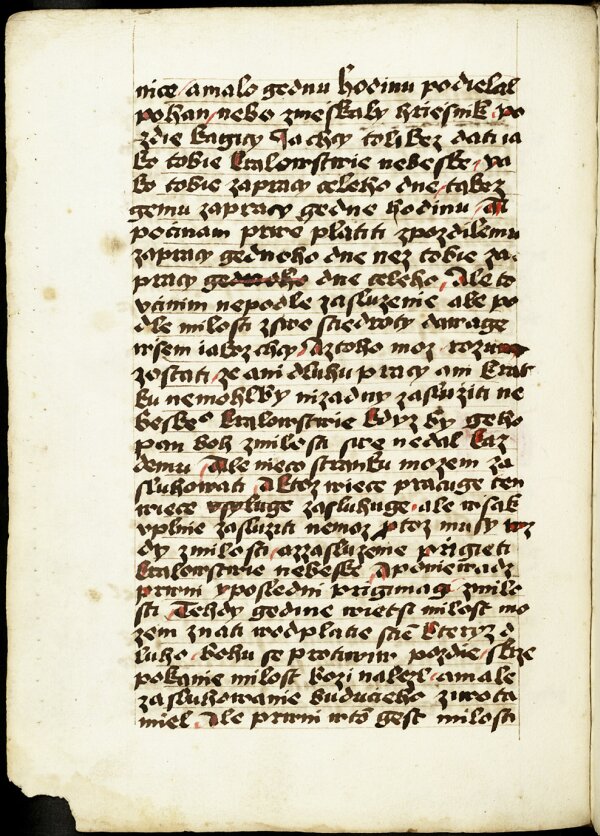 nice / a malo gednu hodinu podielal
pohan / nebo zmeskaly hriesnik po
zdie kagicy Ja chcy tolikez dati ia
ko tobie kralowstwie nebeske / ya
ko tobie zapracy celeho dne / takez
gemu zapracy gedne hodinu / A
pocinam prwe platiti zpozdilemu
zapracy gedneho dne nez tobie za
pracy dne celeho / Ale to
vcinim nepodle zasluzenie ale po
dle milosti zswe scziedroty dawage
wsem iakoz chcy / Az toho moz
zostati / ze ani dluhu pracy ani krat
ku nemohlby nizadny zasluziti ne
beskeo kralowstwie kdyz by geho
pan boh zmilosti swe nedal kaz
demu / Ale nieco stranku mozem za
sluhowati / A ktoz wiece pracuge ten
wiece vysluge zasluhuge / ale wsak
vplnie zasluziti nemoz / ptoz musy
dy zmilosti / azzasluzenie prigieti
kralowstwie nebeske / A poniewadz
prwni yposledni prigimagi zmilo
sti / Tehdy gedine wietsi milost mo
zem znati wodplatie sciē kteryz d
luho bohu se protiwiw pozdie / skrze
pokanie milost bozi nalezl / a male
zasluhowanie buducieho ziwota
miel / Ale prwni wtō gest milosti